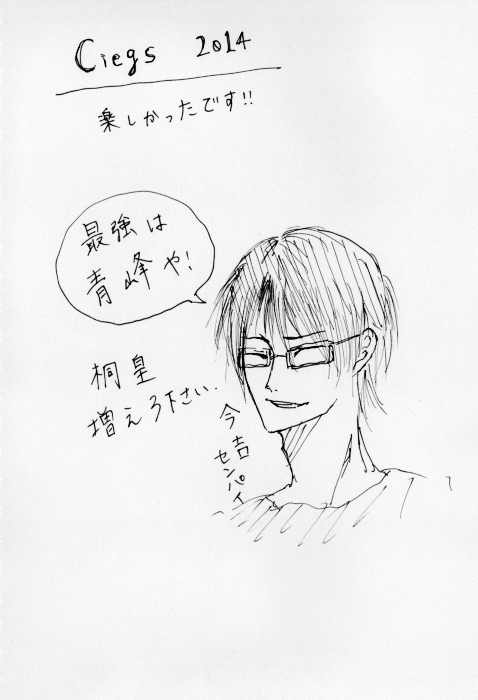 Ciegs 2014
楽しかったです!!
最強は
青峰や!
桐皇
増えろ下さい.
今吉
センパイ